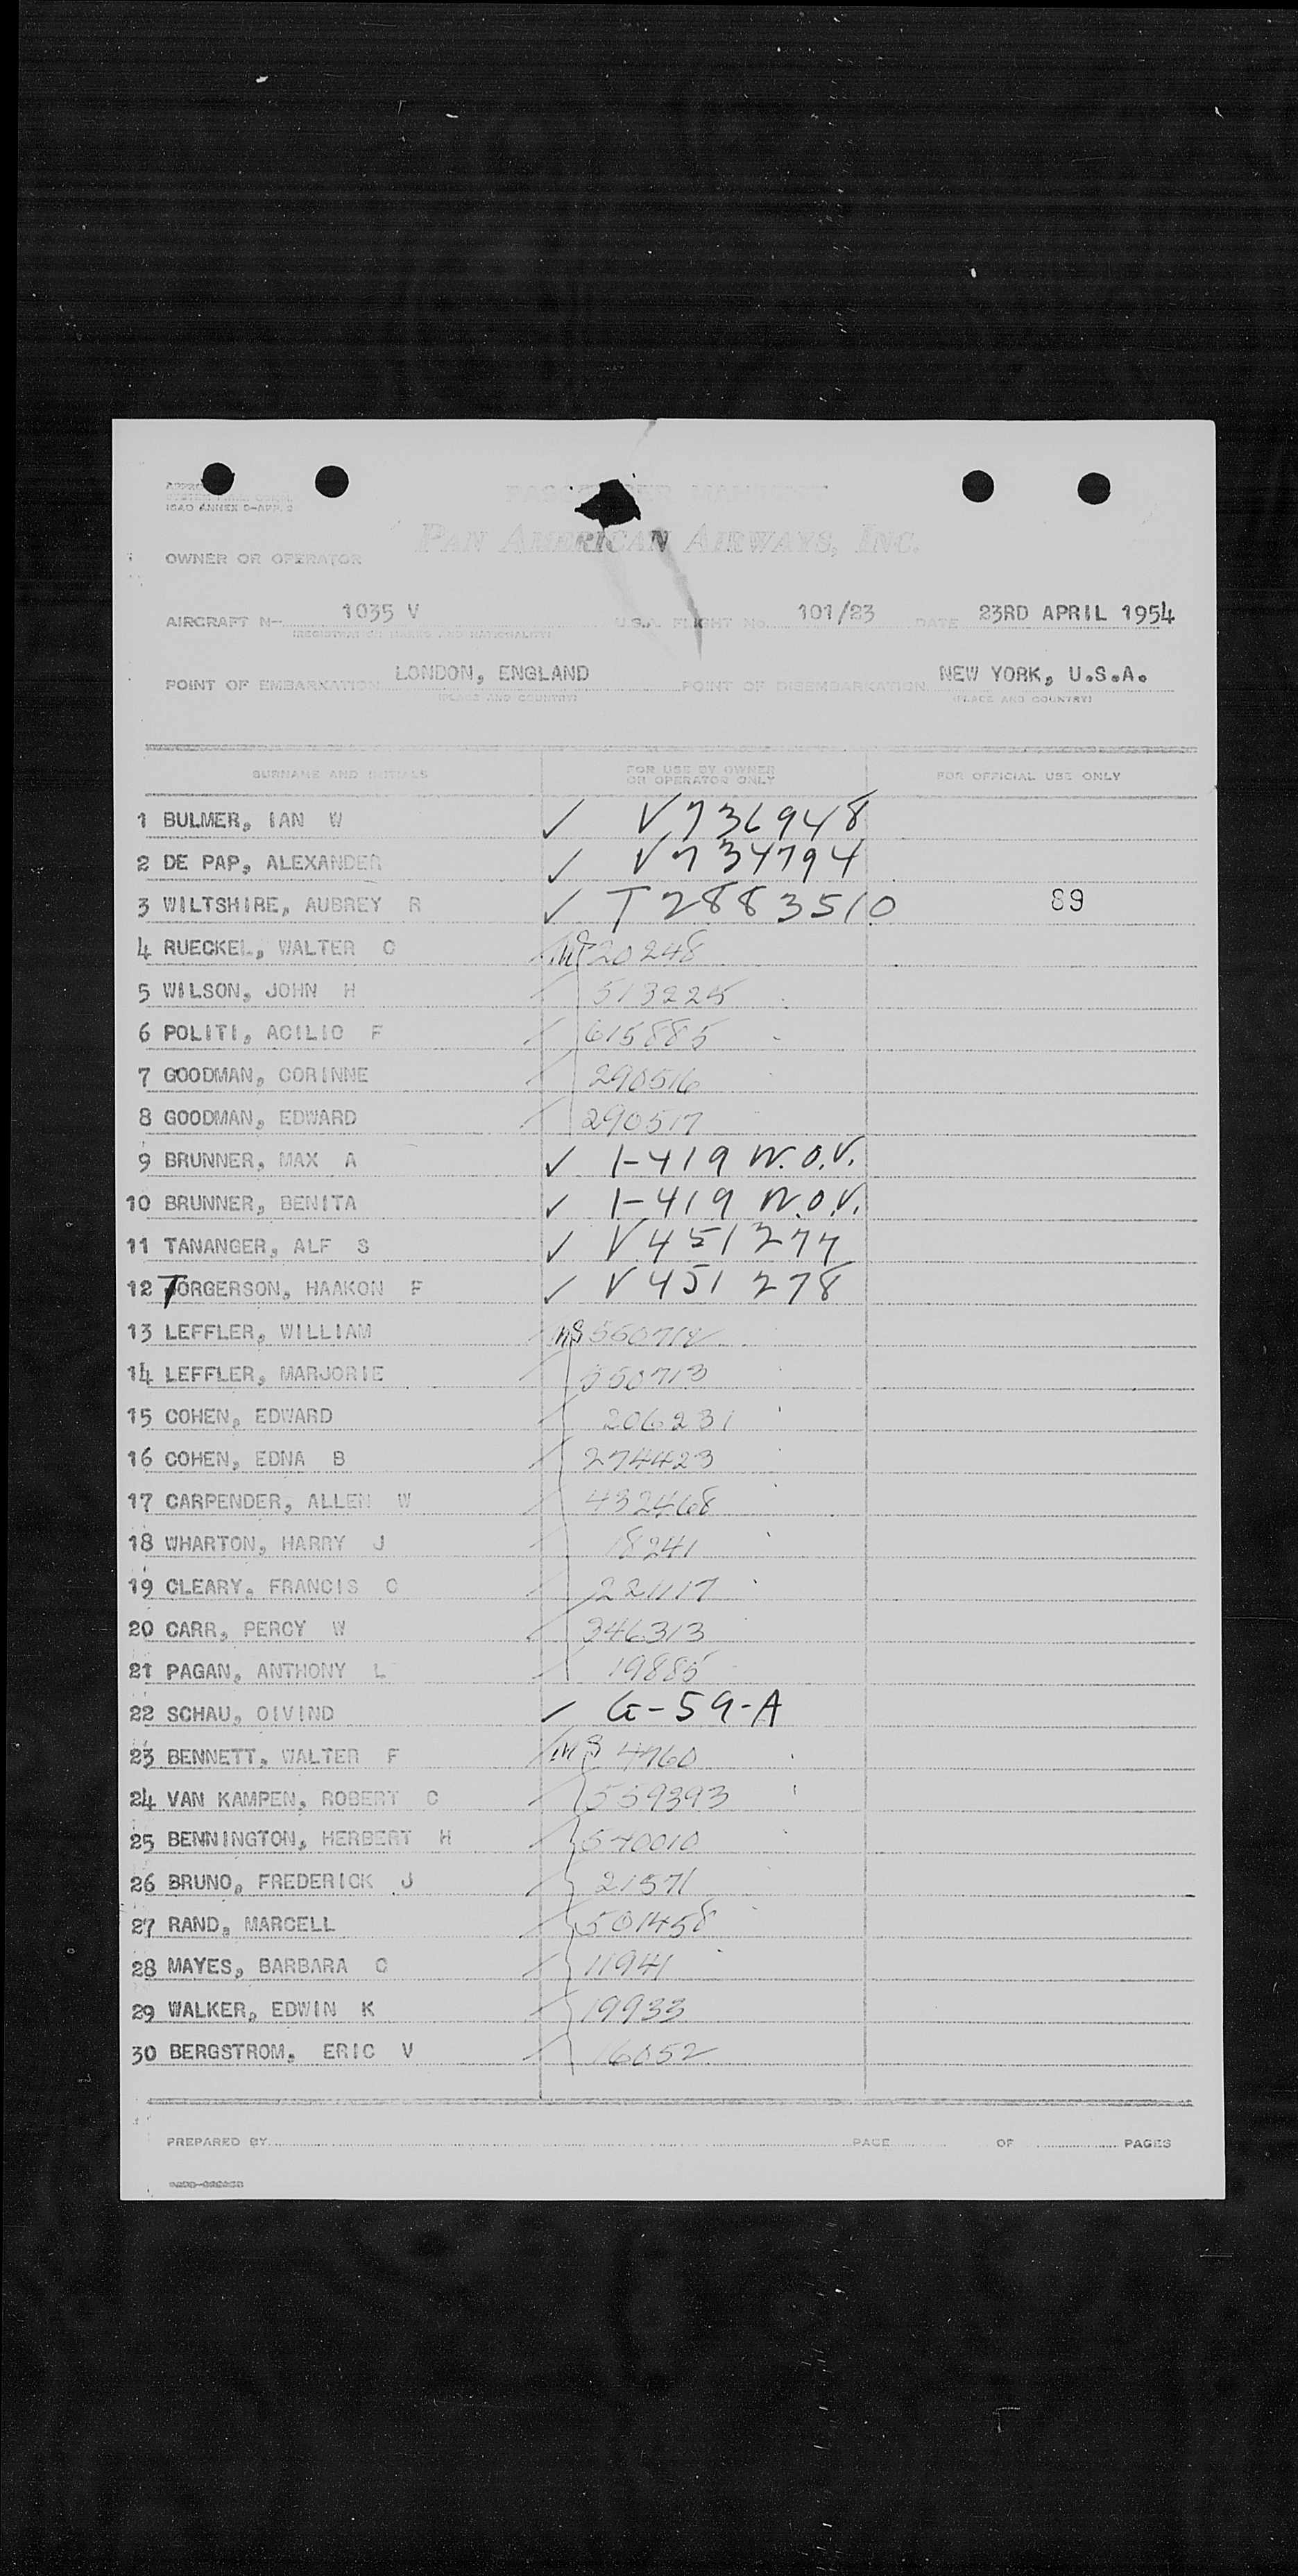 ICAO ANNEX 9-APP. 2
PASSENGER MANIFEST
PAN AMERICAN AIRWAYS, INC.
OWNER OR OPERATOR
AIRCRAFT N- 1035 V U.S.A. FLIGHT No. 101/23 DATE 23RD APRIL 1954
(REGISTRATION MARKS AND NATIONALITY)
POINT OF EMBARKATION LONDON, ENGLAND POINT OF DISEMBARKATION NEW YORK, U.S.A.
(PLACE AND COUNTRY) (PLACE AND COUNTRY)
SURNAME AND INITIALS FOR USE BY OWNER OR OPERATOR ONLY FOR OFFICIAL USE ONLY
1 BULMER, IAN W ✓ V736948
2 DE PAP, ALEXANDER ✓ V734794
3 WILTSHIRE, AUBREY R ✓ T2883510 89
4 RUECKEL, WALTER C 20248
5 WILSON, JOHN H 513225
6 POLITI, ACILIO F 615885
7 GOODMAN, CORINNE 290516
8 GOODMAN, EDWARD 290517
9 BRUNNER, MAX A ✓ 1-419 W.O.V.
10 BRUNNER, BENITA ✓ 1-419 W.O.V.
11 TANANGER, ALF S ✓ V451277
12 TORGERSON, HAAKON F ✓ V451278
13 LEFFLER, WILLIAM 550712
14 LEFFLER, MARJORIE 550713
15 COHEN, EDWARD 206231
16 COHEN, EDNA B 274423
17 CARPENDER, ALLEN W 432468
18 WHARTON, HARRY J 18241
19 CLEARY, FRANCIS C 221117
20 CARR, PERCY W 346313
21 PAGAN, ANTHONY L 19885
22 SCHAU, OIVIND ✓ G-59-A
23 BENNETT, WALTER F 4760
24 VAN KAMPEN, ROBERT C 559393
25 BENNINGTON, HERBERT H 540010
26 BRUNO, FREDERICK J 21571
27 RAND, MARCELL 501458
28 MAYES, BARBARA C 11941
29 WALKER, EDWIN K 19933
30 BERGSTROM, ERIC V 16052
PREPARED BY PAGE OF PAGES